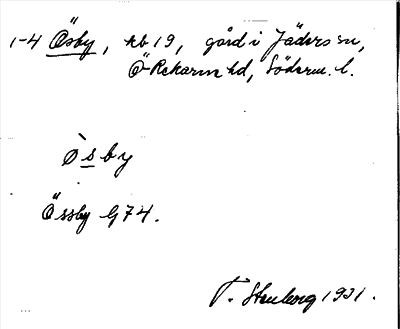 1-4 Ösby, kb 19, gård i Jäders sn,
Ö-Rekarne hd, Söderm. l.
ò̈sby
Össby G74.
T. Stenborg 1931.